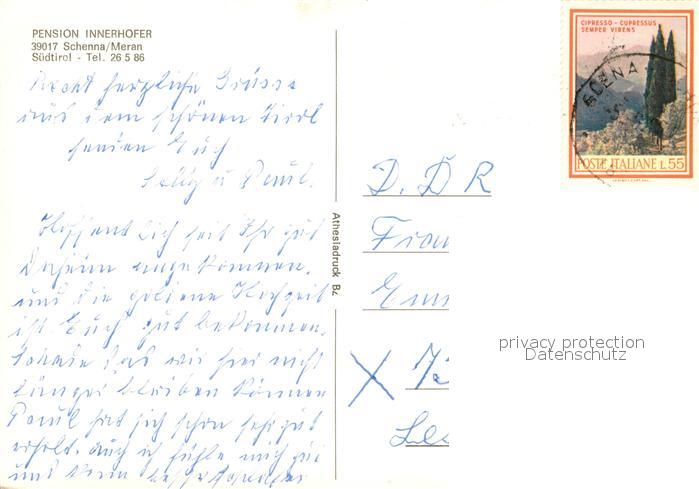 PENSION INNERHOFER
39017 Schenna/Meran
Südtirol - Tel. 26 5 86
Recht herzliche Grüsse
aus dem schönen Tirol
senden Euch
u Paul.
Hoffentlich seit Ihr gut
Daheim angekommen,
und die goldene Hochzeit
ist Euch gut bekommen.
Schade das wir hier nicht
länger bleiben können
Paul hat sich schon sehr gut
erholt. auch ich fühle mich
und kann besser
Athesiadruck Bz
CIPRESSO - CUPRESSUS
SEMPER VIRENS
SCENA
POSTE ITALIANE L.55
D.D R
Frau
X
privacy protection
Datenschutz